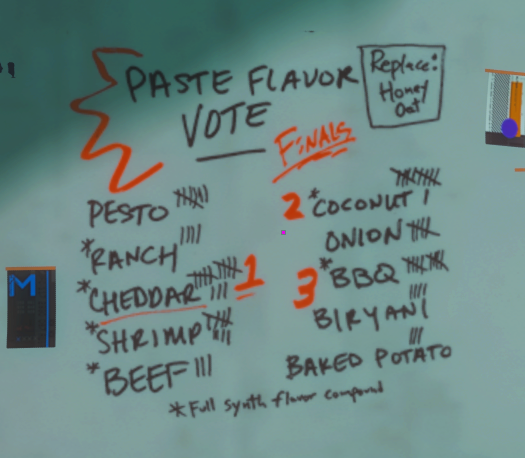 PASTE FLAVOR
VOTE
Replace:
Honey
Oat
FINALS
PESTO
*RANCH
*CHEDDAR 1
*SHRIMP
*BEEF
2 *COCONUT
ONION
3 *BBQ
BIRYANI
BAKED POTATO
*Full synth flavor compound
M